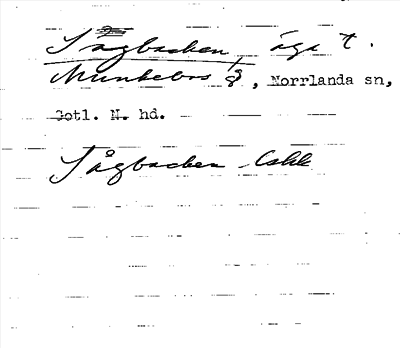 Sågbacken, äga t.
Munkebos 8, Norrlanda sn,
Gotl. N. hd.
Sågbacken